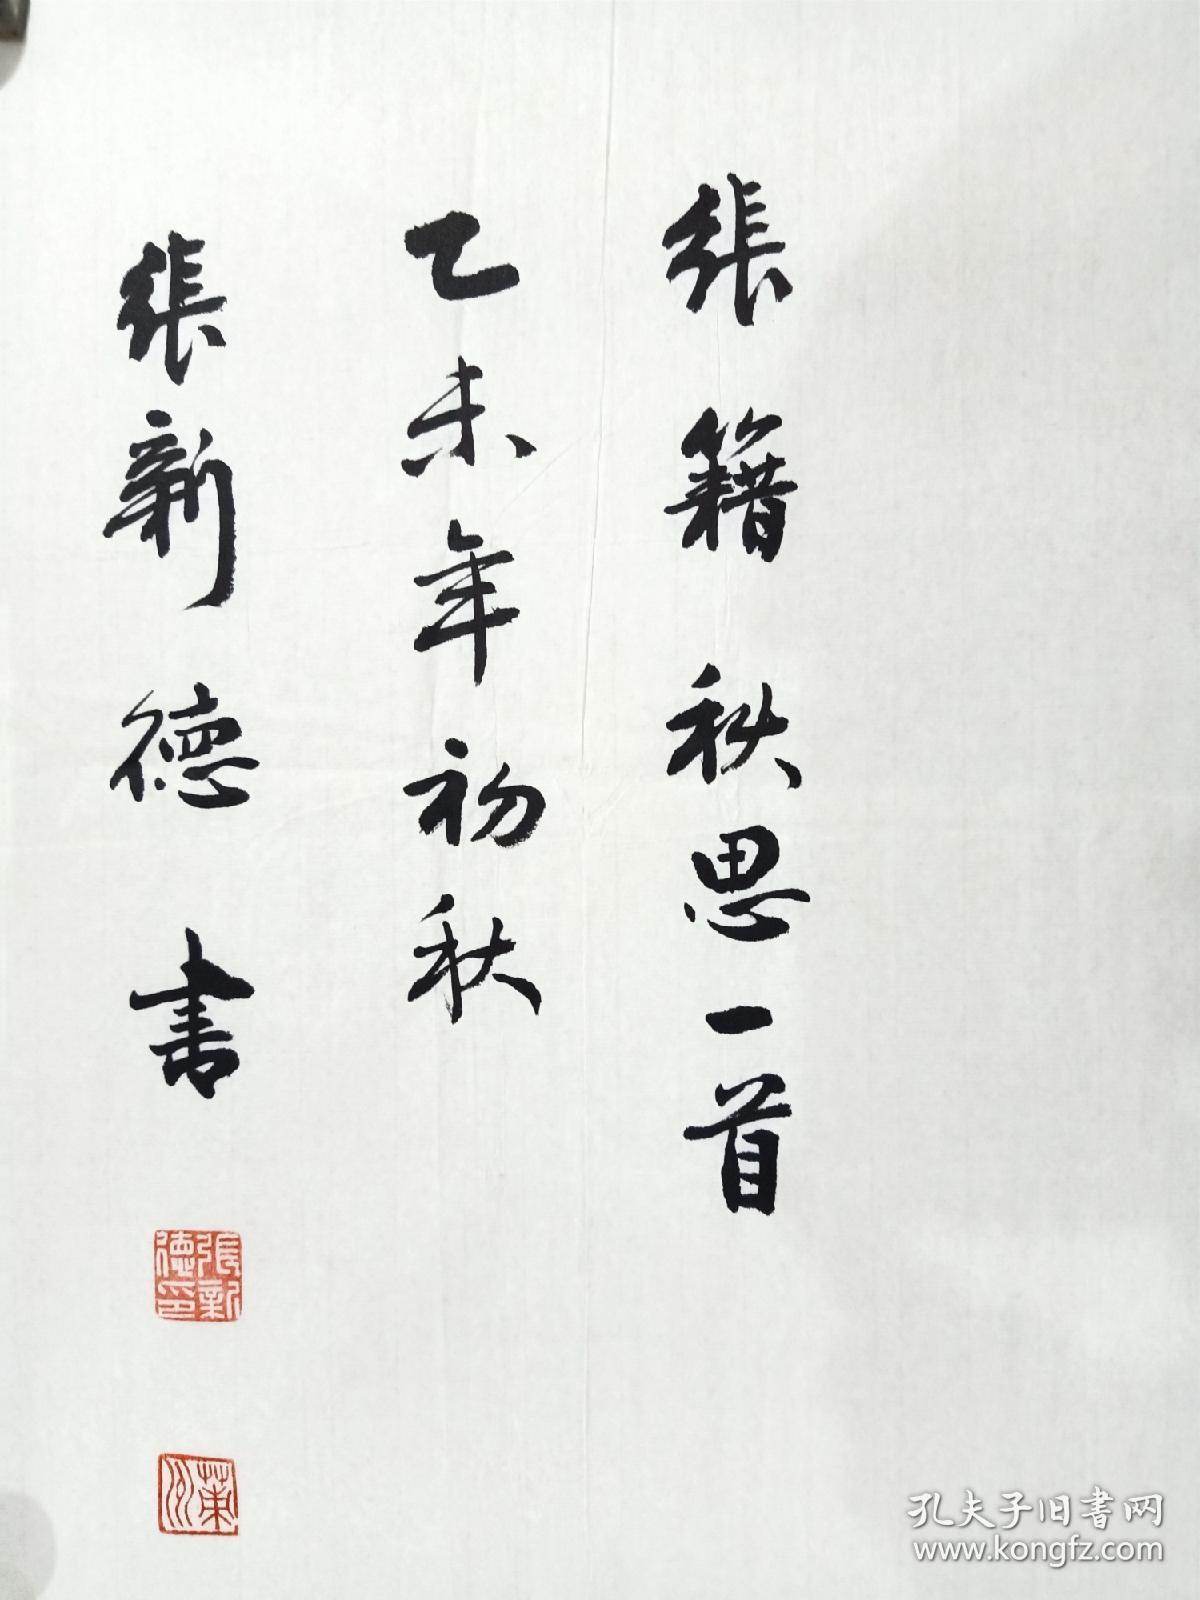 張籍秋思一首
乙未年初秋
張新德書
張新德印
孔夫子旧书网
www.kongfz.com